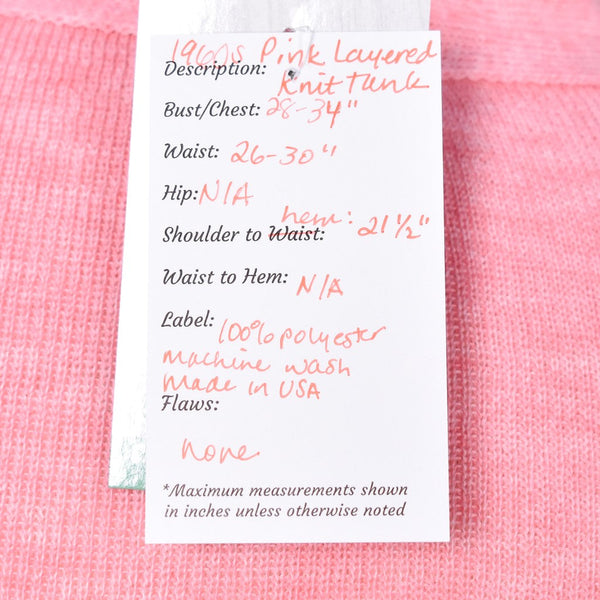 1960s Pink Layered
Description: Knit Tank
Bust/Chest: 28-34"
Waist: 26-30"
Hip: N/A
hem:
Shoulder to Waist: 21 1/2"
Waist to Hem: N/A
Label: 100% polyester
machine wash
Made in USA
Flaws:
none
*Maximum measurements shown
in inches unless otherwise noted